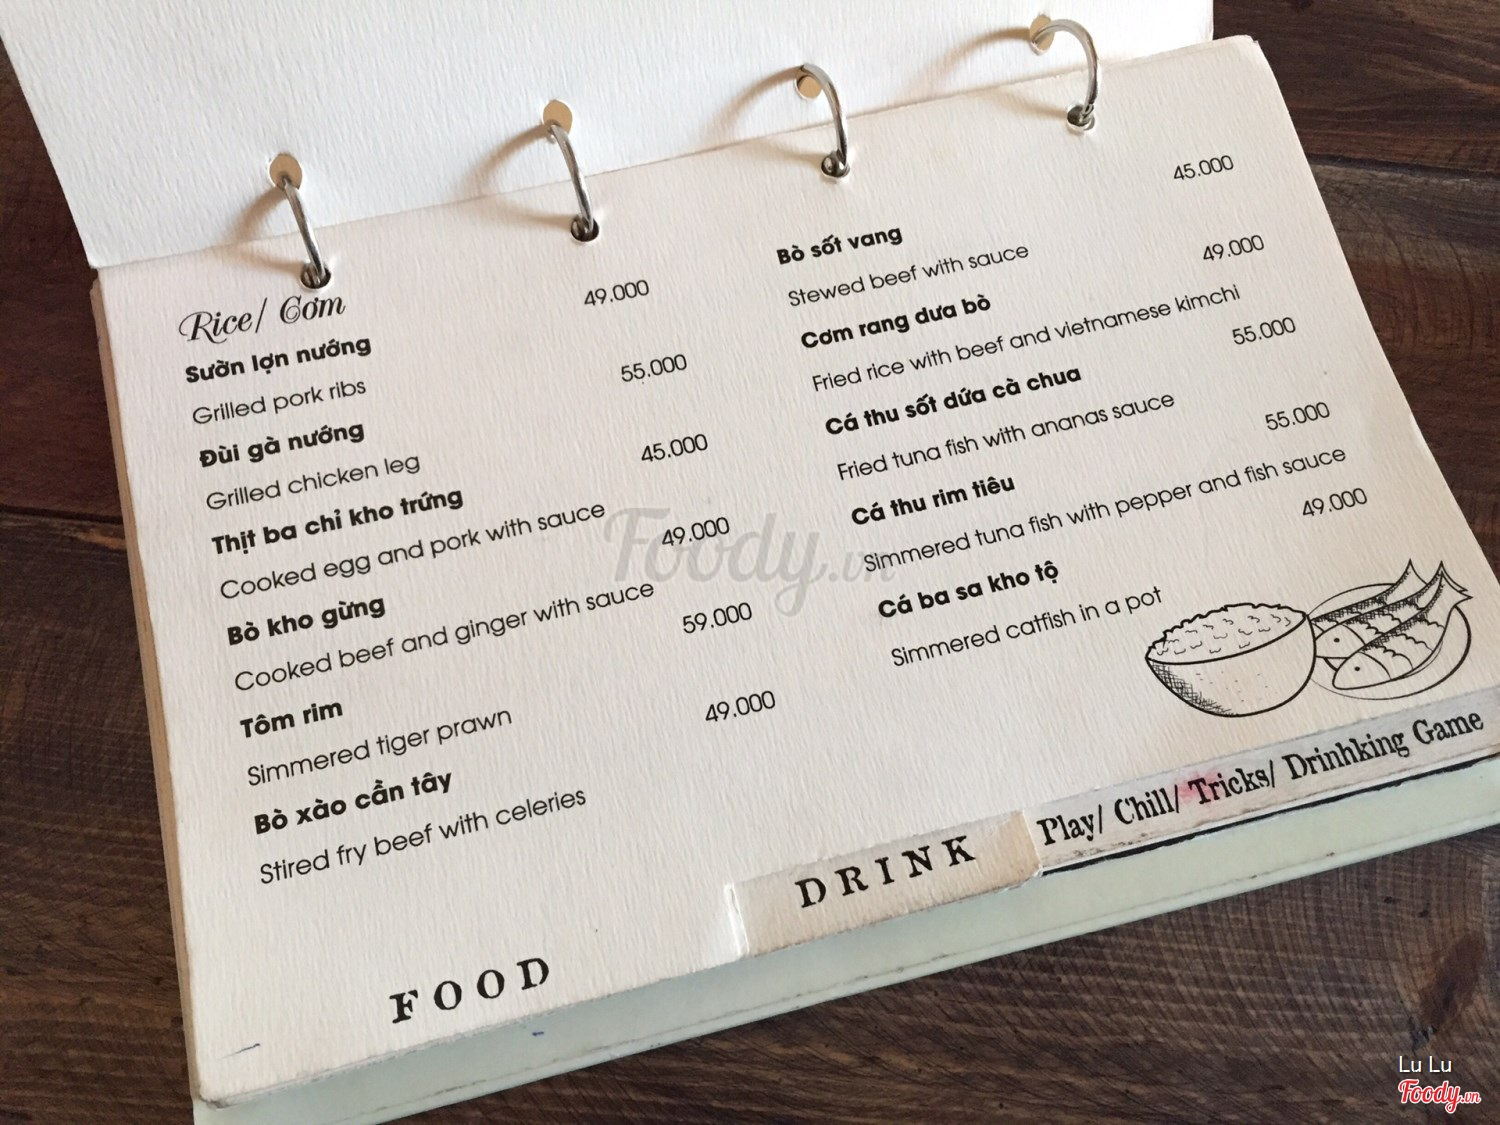 Rice/ Cơm
Sườn lợn nướng 49.000
Grilled pork ribs
Đùi gà nướng 55.000
Grilled chicken leg
Thịt ba chỉ kho trứng 45.000
Cooked egg and pork with sauce
Bò kho gừng 49.000
Cooked beef and ginger with sauce
Tôm rim 59.000
Simmered tiger prawn
Bò xào cần tây 49.000
Stired fry beef with celeries
Bò sốt vang 45.000
Stewed beef with sauce
Cơm rang dưa bò 49.000
Fried rice with beef and vietnamese kimchi
Cá thu sốt dứa cà chua 55.000
Fried tuna fish with ananas sauce
Cá thu rim tiêu 55.000
Simmered tuna fish with pepper and fish sauce
Cá ba sa kho tộ 49.000
Simmered catfish in a pot
FOOD
DRINK
Play/ Chill/ Tricks/ Drinhking Game
Foody.vn
Lu Lu
Foody.vn